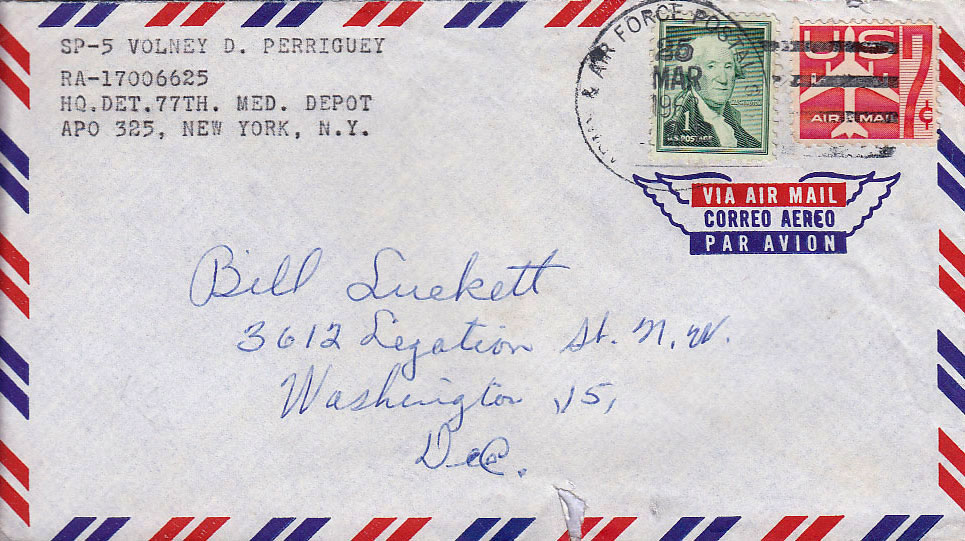 SP-5 VOLNEY D. PERRIGUEY
RA-17006625
HQ.DET.77TH. MED. DEPOT
APO 325, NEW YORK, N.Y.
& AIR FORCE POSTAL
25
MAR
1
U.S. POSTAGE
US
7¢
AIR MAIL
VIA AIR MAIL
CORREO AEREO
PAR AVION
Bill Luckett
3612 Legation St. N.W.
Washington 15,
D.C.